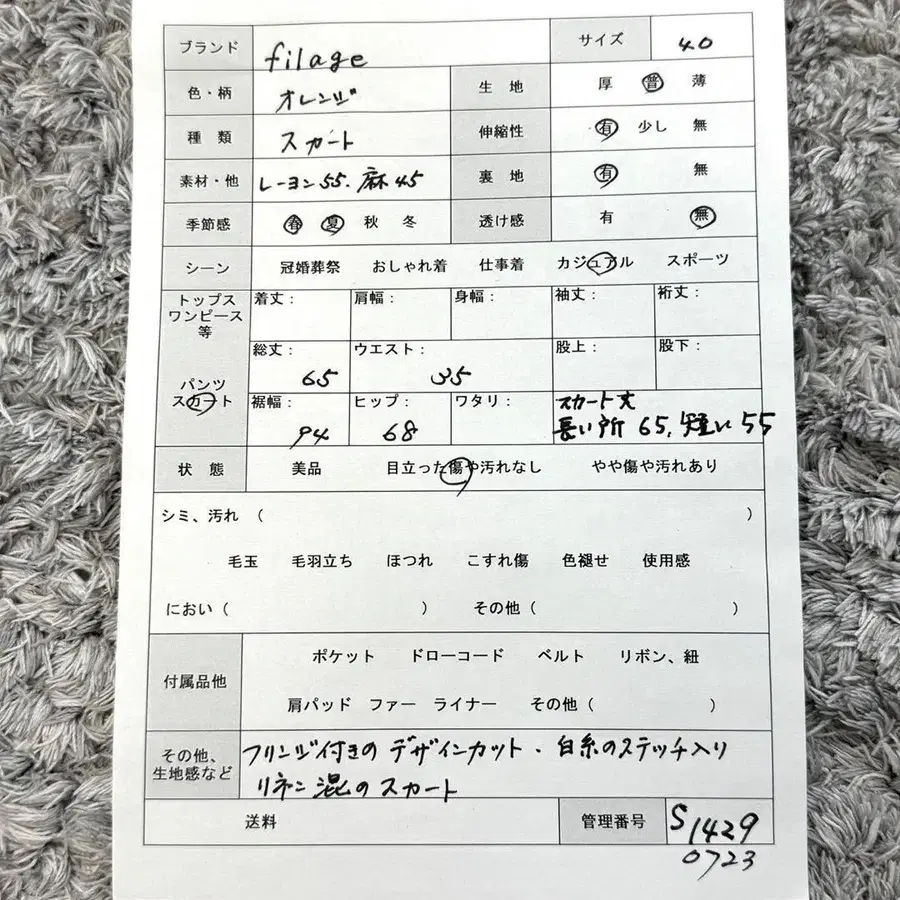 ブランド filage サイズ 40
色・柄 オレンジ 生地 厚 普 薄
種類 スカート 伸縮性 有 少し 無
素材・他 レーヨン55.麻45 裏地 有 無
季節感 春 夏 秋 冬 透け感 有 無
シーン 冠婚葬祭 おしゃれ着 仕事着 カジュアル スポーツ
トップス 着丈: 肩幅: 身幅: 袖丈: 裄丈:
ワンピース
等
総丈: 65 ウエスト: 35 股上: 股下:
パンツ
スカート
裾幅: 94 ヒップ: 68 ワタリ: スカート丈
長い所 65, 短い 55
状態 美品 目立った傷や汚れなし やや傷や汚れあり
シミ、汚れ ( )
毛玉 毛羽立ち ほつれ こすれ傷 色褪せ 使用感
におい ( ) その他 ( )
付属品他 ポケット ドローコード ベルト リボン、紐
肩パッド ファー ライナー その他 ( )
その他、
生地感など
フリンジ付きのデザインカット・白糸のステッチ入り
リネン混のスカート
送料 管理番号 S1429
0723